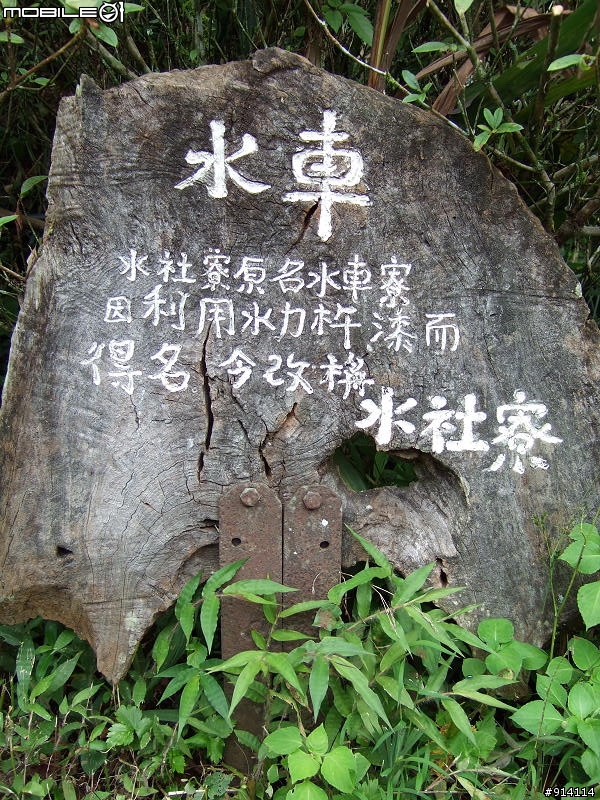 MOBILE01
水車
水社寮原名水車寮
因利用水力杵漆而
得名今改稱
水社寮
#914114